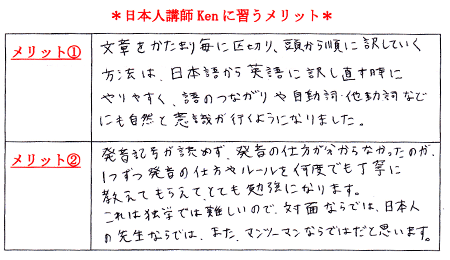 ＊日本人講師 Ken に習うメリット＊
メリット①
文章をかたまり毎に区切り、頭から順に訳していく
方法は、日本語から英語に訳し直す時に
やりやすく、語のつながりや自動詞・他動詞など
にも自然と意識が行くようになりました。
メリット②
発音記号が読めず、発音の仕方が分からなかったのが、
1つずつ発音の仕方やルールを何度でも丁寧に
教えてもらえて、とても勉強になります。
これは独学では難しいので、対面ならでは、日本人
の先生ならでは、また、マンツーマンならではだと思います。